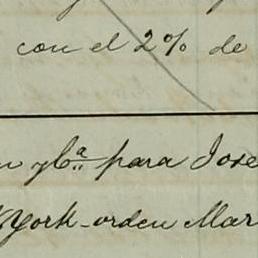 con el 2% de
para Jose
York-orden Mar